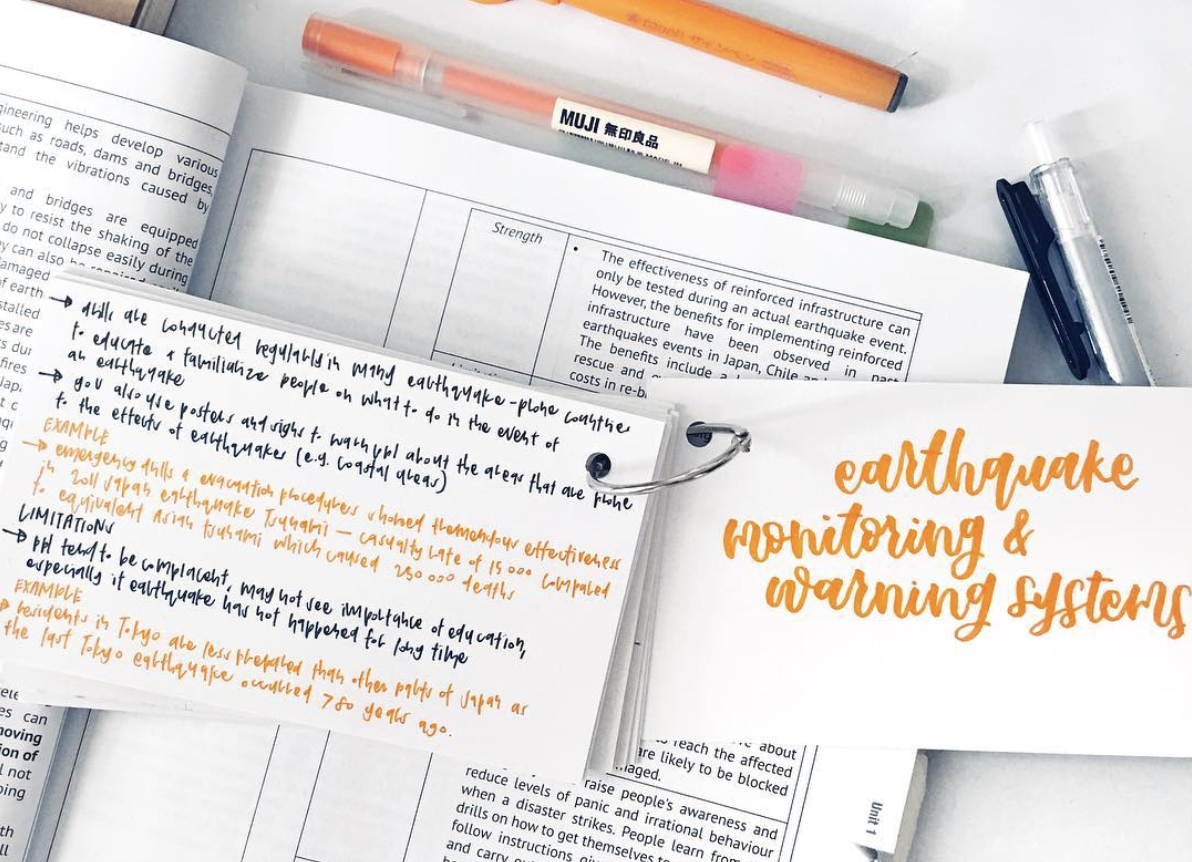 TOUCH
MUJI 無印良品
gineering helps develop various
such as roads, dams and bridges,
tand the vibrations caused by
and bridges are equipped
y to resist the shaking of the
do not collapse easily during
y can also be repaired
amaged
of earth
stalled
es are
s dur
fires
Strength
• The effectiveness of reinforced infrastructure can
only be tested during an actual earthquake event.
However, the benefits for implementing reinforced
infrastructure have been observed in past
earthquakes events in Japan, Chile an
The benefits include a
rescue and
costs in re-b
→ drills are conducted regularly in many earthquake-prone countries
to educate & familiarize people on what to do in the event of
an earthquake
→ gov also use posters and signs to warn ppl about the areas that are prone
to the effects of earthquakes (e.g. coastal areas)
EXAMPLE
→ emergency drills & evacuation procedures showed tremendous effectiveness
in 2011 Japan earthquake Tsunami — casualty rate of 15 000 compared
to equivalent Asian tsunami which caused 250 000 deaths
LIMITATIONS
→ ppl tend to be complacent, may not see importance of education,
especially if earthquake has not happened for long time
EXAMPLE
→ residents in Tokyo are less prepared than other parts of Japan as
the last Tokyo earthquake occurred >80 years ago.
earthquake
monitoring &
warning systems
es can
moving
ion of
l not
ping
th
about
to reach the affected
are likely to be blocked
maged.
raise people's awareness and
reduce levels of panic and irrational behaviour
when a disaster strikes. People learn from
drills on how to get themselves to
follow instructions
and carry
Unit 1